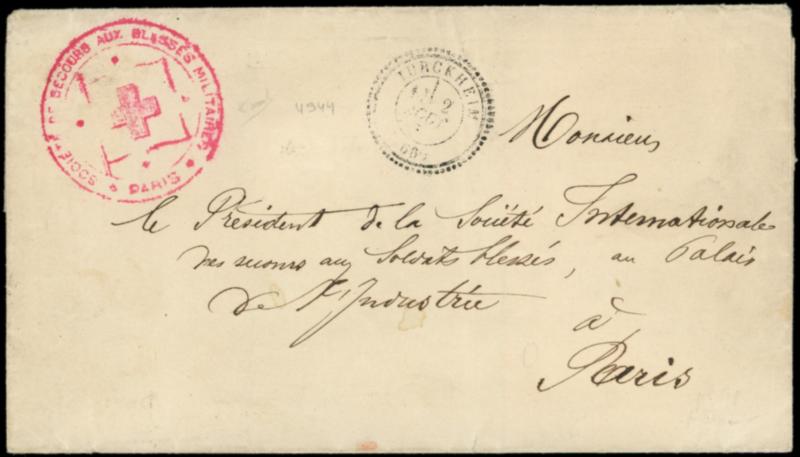 SOCIÉTÉ DE SECOURS AUX BLESSÉS MILITAIRES
PARIS
TURCKHEIM
2
4944
Monsieur
le Président de la Société Internationale
des secours aux Soldats blessés, au Palais
de l'Industrie
à
Paris